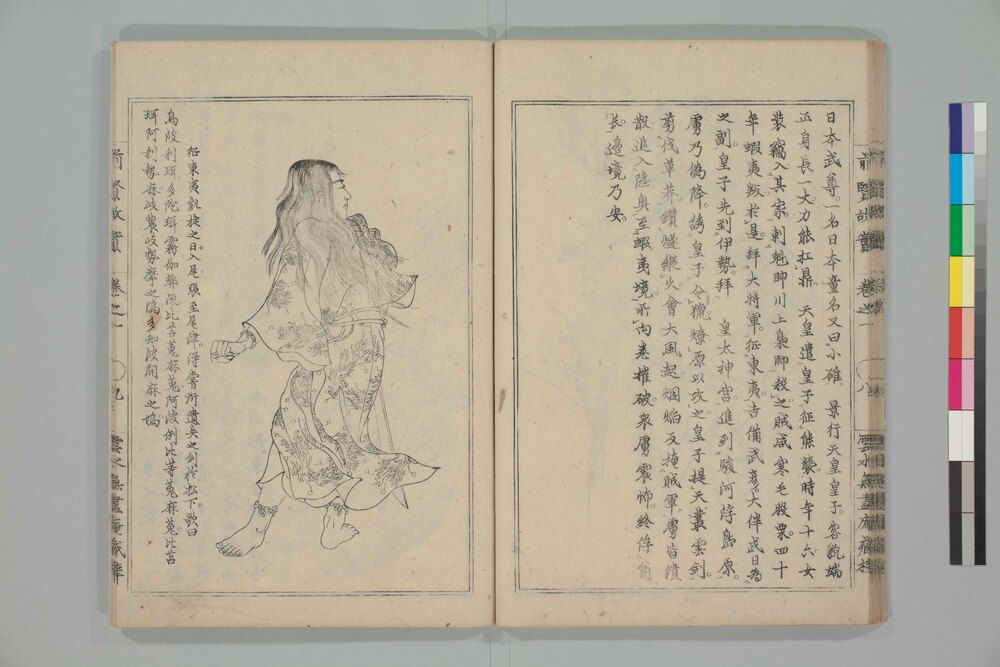 日本武尊一名日本童名又曰小碓。景行天皇皇子。容貌端
正身長一丈力能扛鼎。天皇遣皇子征熊襲時年十六女
装竊入其家刺魁帥川上梟帥殺之賊咸寒毛股栗四十
年蝦夷叛於是拜大将軍。征東夷吉備武彦。大伴武日為
之副。皇子先到伊勢。拜皇太神宮進到駿河浮島原。
虜乃偽降誘皇子令獵燎原以攻之皇子提天叢雲剣
薙伐草莽。鑽燧縱火會大風起烟焔反掩賊軍。虜皆潰
散進入陸奥。至蝦夷境所向悉摧破衆虜震怖。終俘酋
長邊境乃安。
前賢故實 卷之一 八
征東夷凱捷之日。入尾張至尾津。得嘗所遺失之剣於松下。歌曰
烏波利珥多陀珥霧伽幣流比苔菟麻菟阿波例比等菟麻菟比苔
珥阿利勢麻岐農岐勢摩之塢多知波開麻之塢
前賢故實 卷之一 九